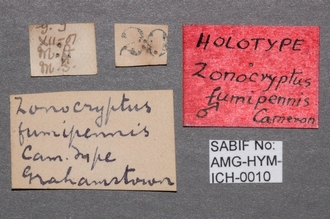 HOLOTYPE
Zonocryptus
fumipennis
♂ Cameron
Zonocryptus
fumipennis
Cam. type
Grahamstown
SABIF No:
AMG-HYM-
ICH-0010